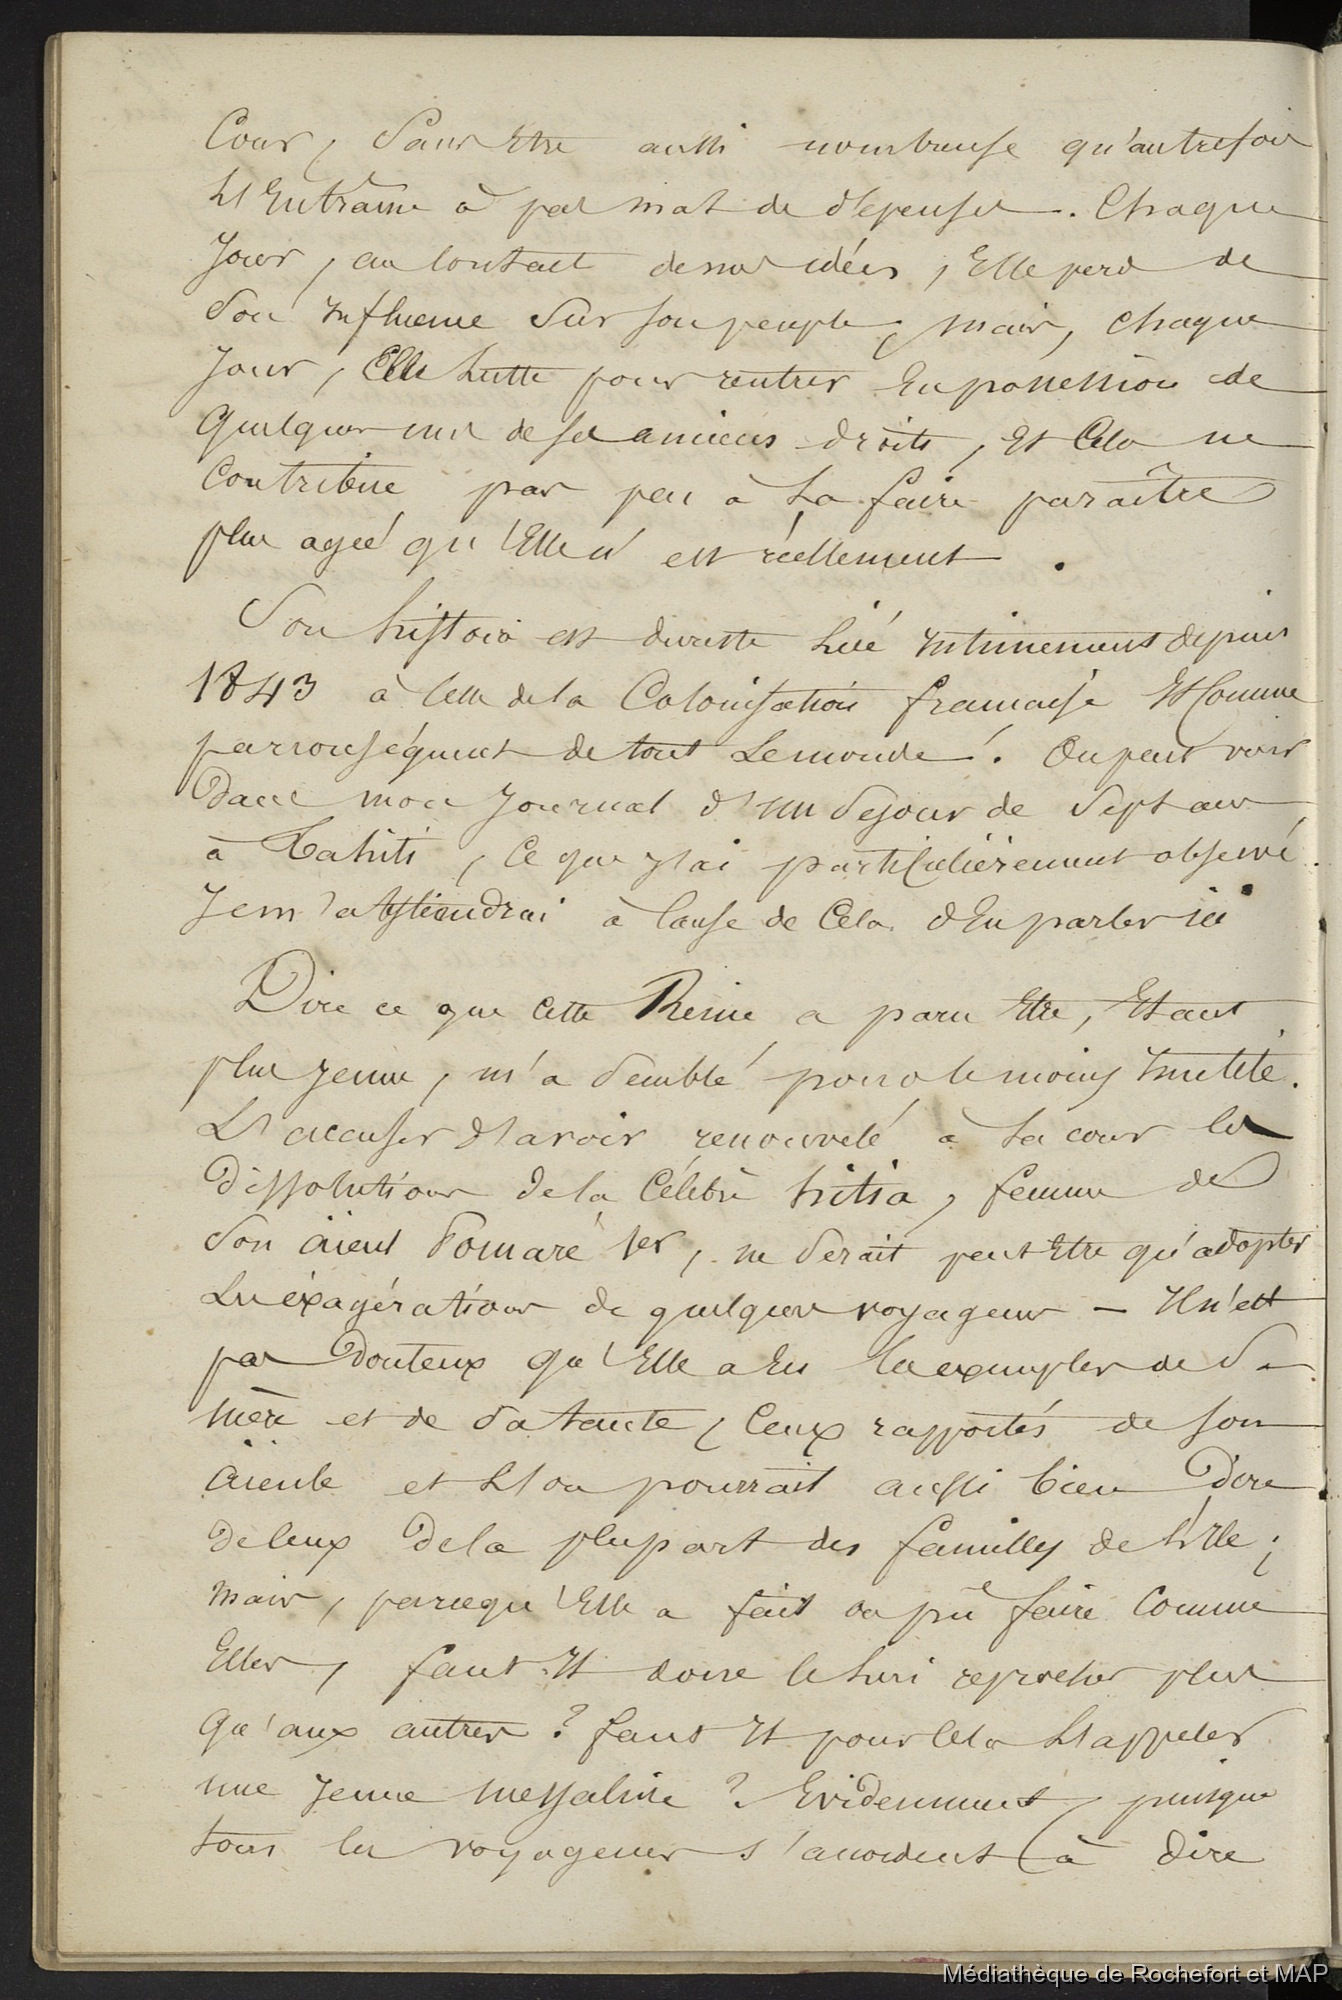 Cour, sans être aussi nombreuse qu'autrefois
l'entraîne à pas mal de dépenses. Chaque
jour, au contact de nos idées, elle perd de
son influence sur son peuple, mais, chaque
jour, elle lutte pour rentrer en possession de
quelques uns de ses anciens droits, et cela ne
contribue pas peu à la faire paraître
plus agée qu'elle n'est réellement.
Son histoire est du reste liée intimement depuis
1843 à celle de la Colonisation française et connue
par conséquent de tout le monde. On peut voir
dans mon journal d'un séjour de sept ans
à Tahiti, ce que j'ai particulièrement observé.
Je m'abstiendrai à cause de cela d'en parler ici
Dire ce que cette Reine a paru être, étant
plus jeune, m'a semblé pour le moins inutile.
L'accuser d'avoir renouvelé à la cour les
dissolutions de la célèbre hitia, femme de
son aïeul Pomaré 1er, ne serait peut être qu'adopter
les exagérations de quelques voyageurs — Il n'est
pas douteux qu'elle a eu les exemples de sa
mère et de sa tante, ceux rapportés de son
aïeule et l'on pourrait aussi bien dire
de ceux de la plupart des familles de l'île;
mais, parcequ'elle a fait ou pû faire comme
elles, faut-il donc le lui reprocher plus
qu'aux autres? faut il pour cela l'appeler
une jeune messaline? Evidemment, puisque
tous les voyageurs s'accordent à dire
Médiathèque de Rochefort et MAP